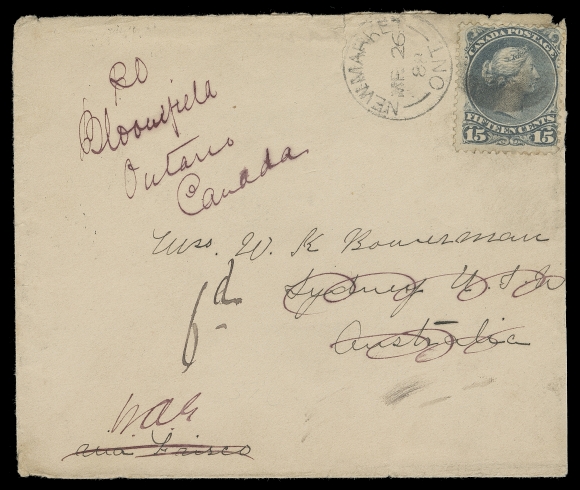 RO
Bloomfield
Ontario
Canada
NEWMARKET ONT
26
CANADA POSTAGE
FIFTEEN CENTS
15 15
Mrs. W. K Bowerman
Sydney
Australia
6d
via Frisco